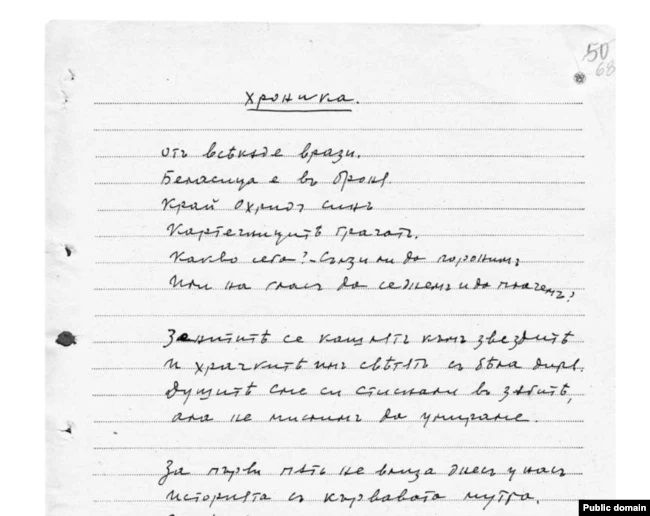 50
68
Хроника.
Отъ всѣкѫде врази.
Беласица е въ броня.
Край Охридъ синъ
Картечницитѣ грачатъ.
Какво сега? – Сълзи ли да поронимъ
Или на гласъ да седнемъ и да плачемъ?
Зенититѣ се кашлятъ къмъ звездитѣ
И храчкитѣ имъ свѣтятъ съ бѣла диря.
Душитѣ сме си стискали въ зѫбитѣ,
ала не мислимъ да умираме.
За първи пѫть не влиза днесъ у насъ
Историята съ кървавата мутра.
Public domain